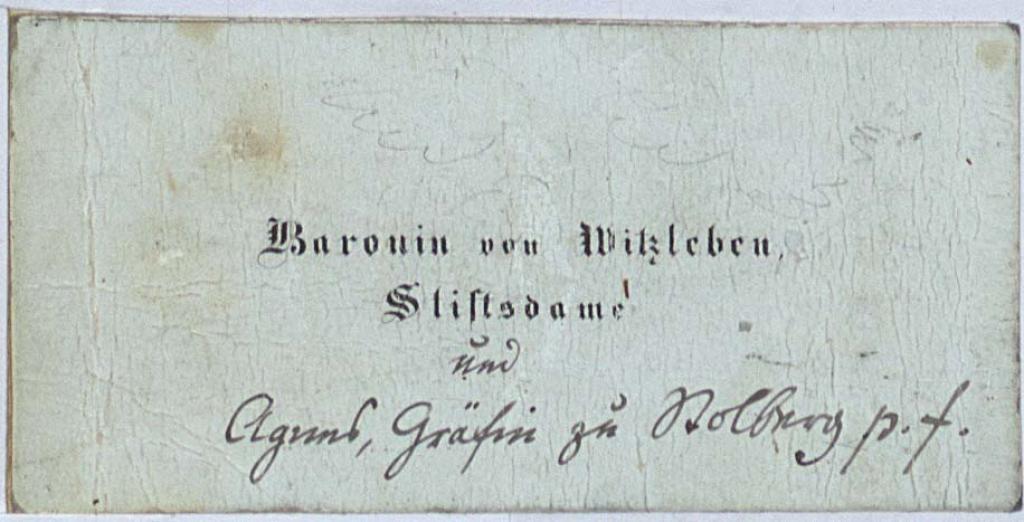 Baronin von Witzleben,
Stiftsdame
und
Agnes, Gräfin zu Stolberg p. f.